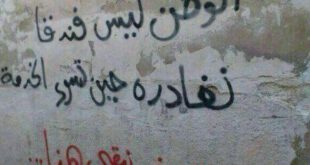 الوطن ليس فندقا
نغادره حين تسوء الخدمة